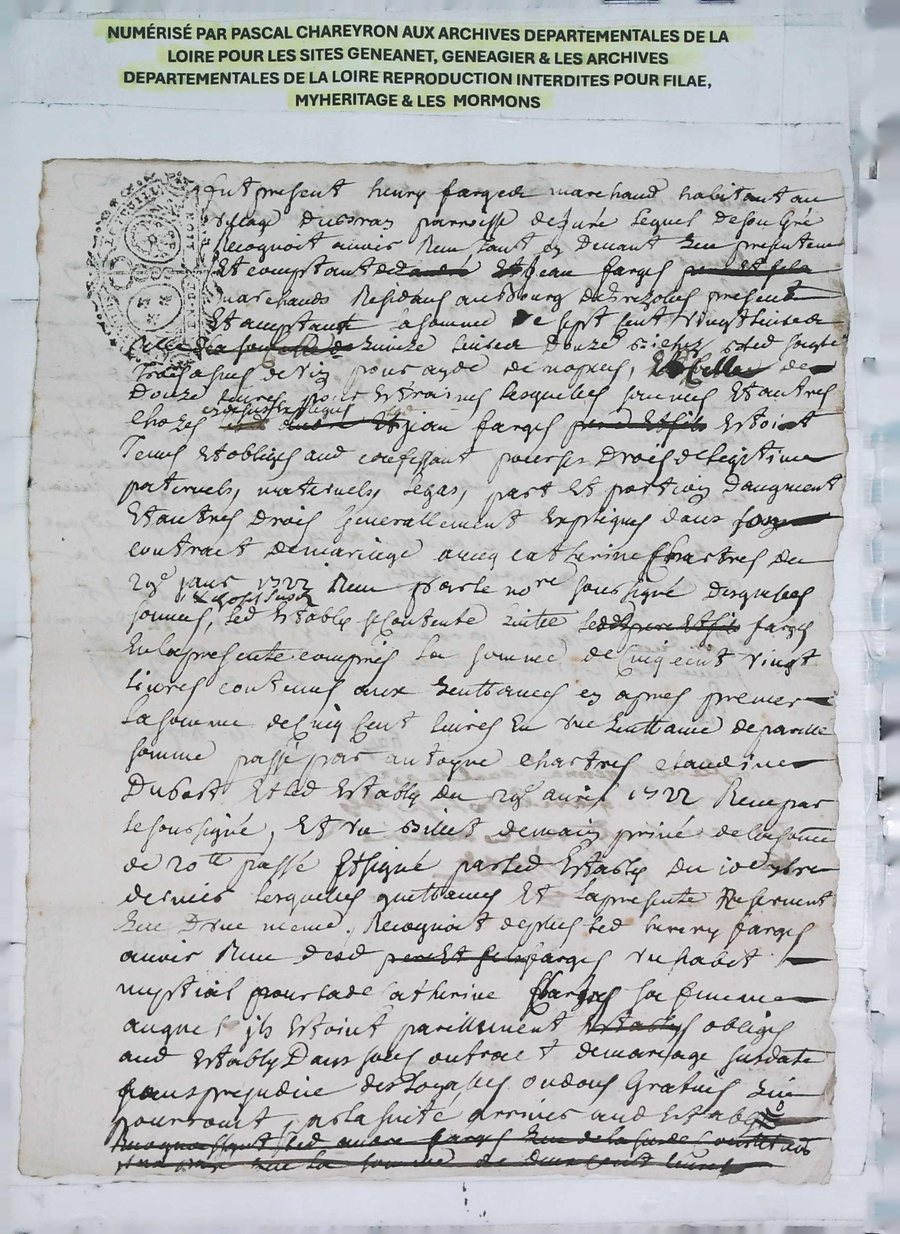 NUMÉRISÉ PAR PASCAL CHAREYRON AUX ARCHIVES DEPARTEMENTALES DE LA
LOIRE POUR LES SITES GENEANET, GENEAGIER & LES ARCHIVES
DEPARTEMENTALES DE LA LOIRE REPRODUCTION INTERDITES POUR FILAE,
MYHERITAGE & LES MORMONS
fut present henry farges marchand habitant au
village paroisse de Jure lequel de son gré
Recognoit avoir Reçu tant cy devant que presentem
Et comptant de Jean farges
marchands Residans au Bourg present
Et acceptant la somme de sept cent vingt livres
quinze livres douze
de vin pour de nopces, de
Douze livres pour lesquelles sommes Et autres
chozes Jean farges Estoint
Tenus Et obligés aud confessant pour ses Drois de legitime
paternels, maternels, legas, part Et portion Daugment
Et autres Drois Generallement Expliqués dans son
contract de mariage avecq catherine chartres du
29e janv 1722 Reçu par le nore soussigné Desquelles
sommes, led Estably se contente quitte led farges
En la presente compris la somme de Cinq cent vingt
livres contenus aux quittances cy apres premier
La somme de Cinq Cent livres En une quittance de pareille
somme passé par antoyne chartres claudine
Dubost Et led Estably du 29e avril 1722 Reçu par
le soussigné, Et un billet de main privé de la somme
de 20tt passé Et signé par led Estably du 10e
dernier lesquelles quittances Et la presente ne serviront
que Dune meme. Recognoit de plus led henry farges
avoir Reçu dud farges un habit
nuptial pour lade Catherine chartres sa femme
auquel ils Estoint pareillement obligés
aud Estably Dans son contract de mariage susdate
sans prejudice des Loyalles ou dons Gratuis qui
pourroint, a la suite arriver aud Estably
led farges que de la susde
que la somme de deux cent livres